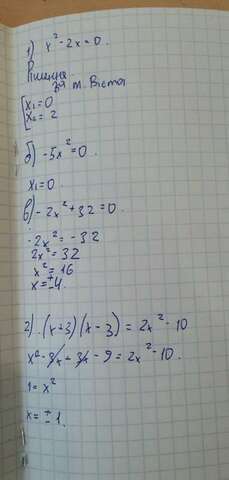 1) x² - 2x = 0.
за т. Вієта
[x₁ = 0
x₂ = 2
б) -5x² = 0.
x₁ = 0.
в) -2x² + 32 = 0.
-2x² = -32
2x² = 32
x² = 16
x = ±4.
2) (x+3)(x-3) = 2x² - 10
x² - 3x + 3x - 9 = 2x² - 10.
1 = x²
x = ±1.